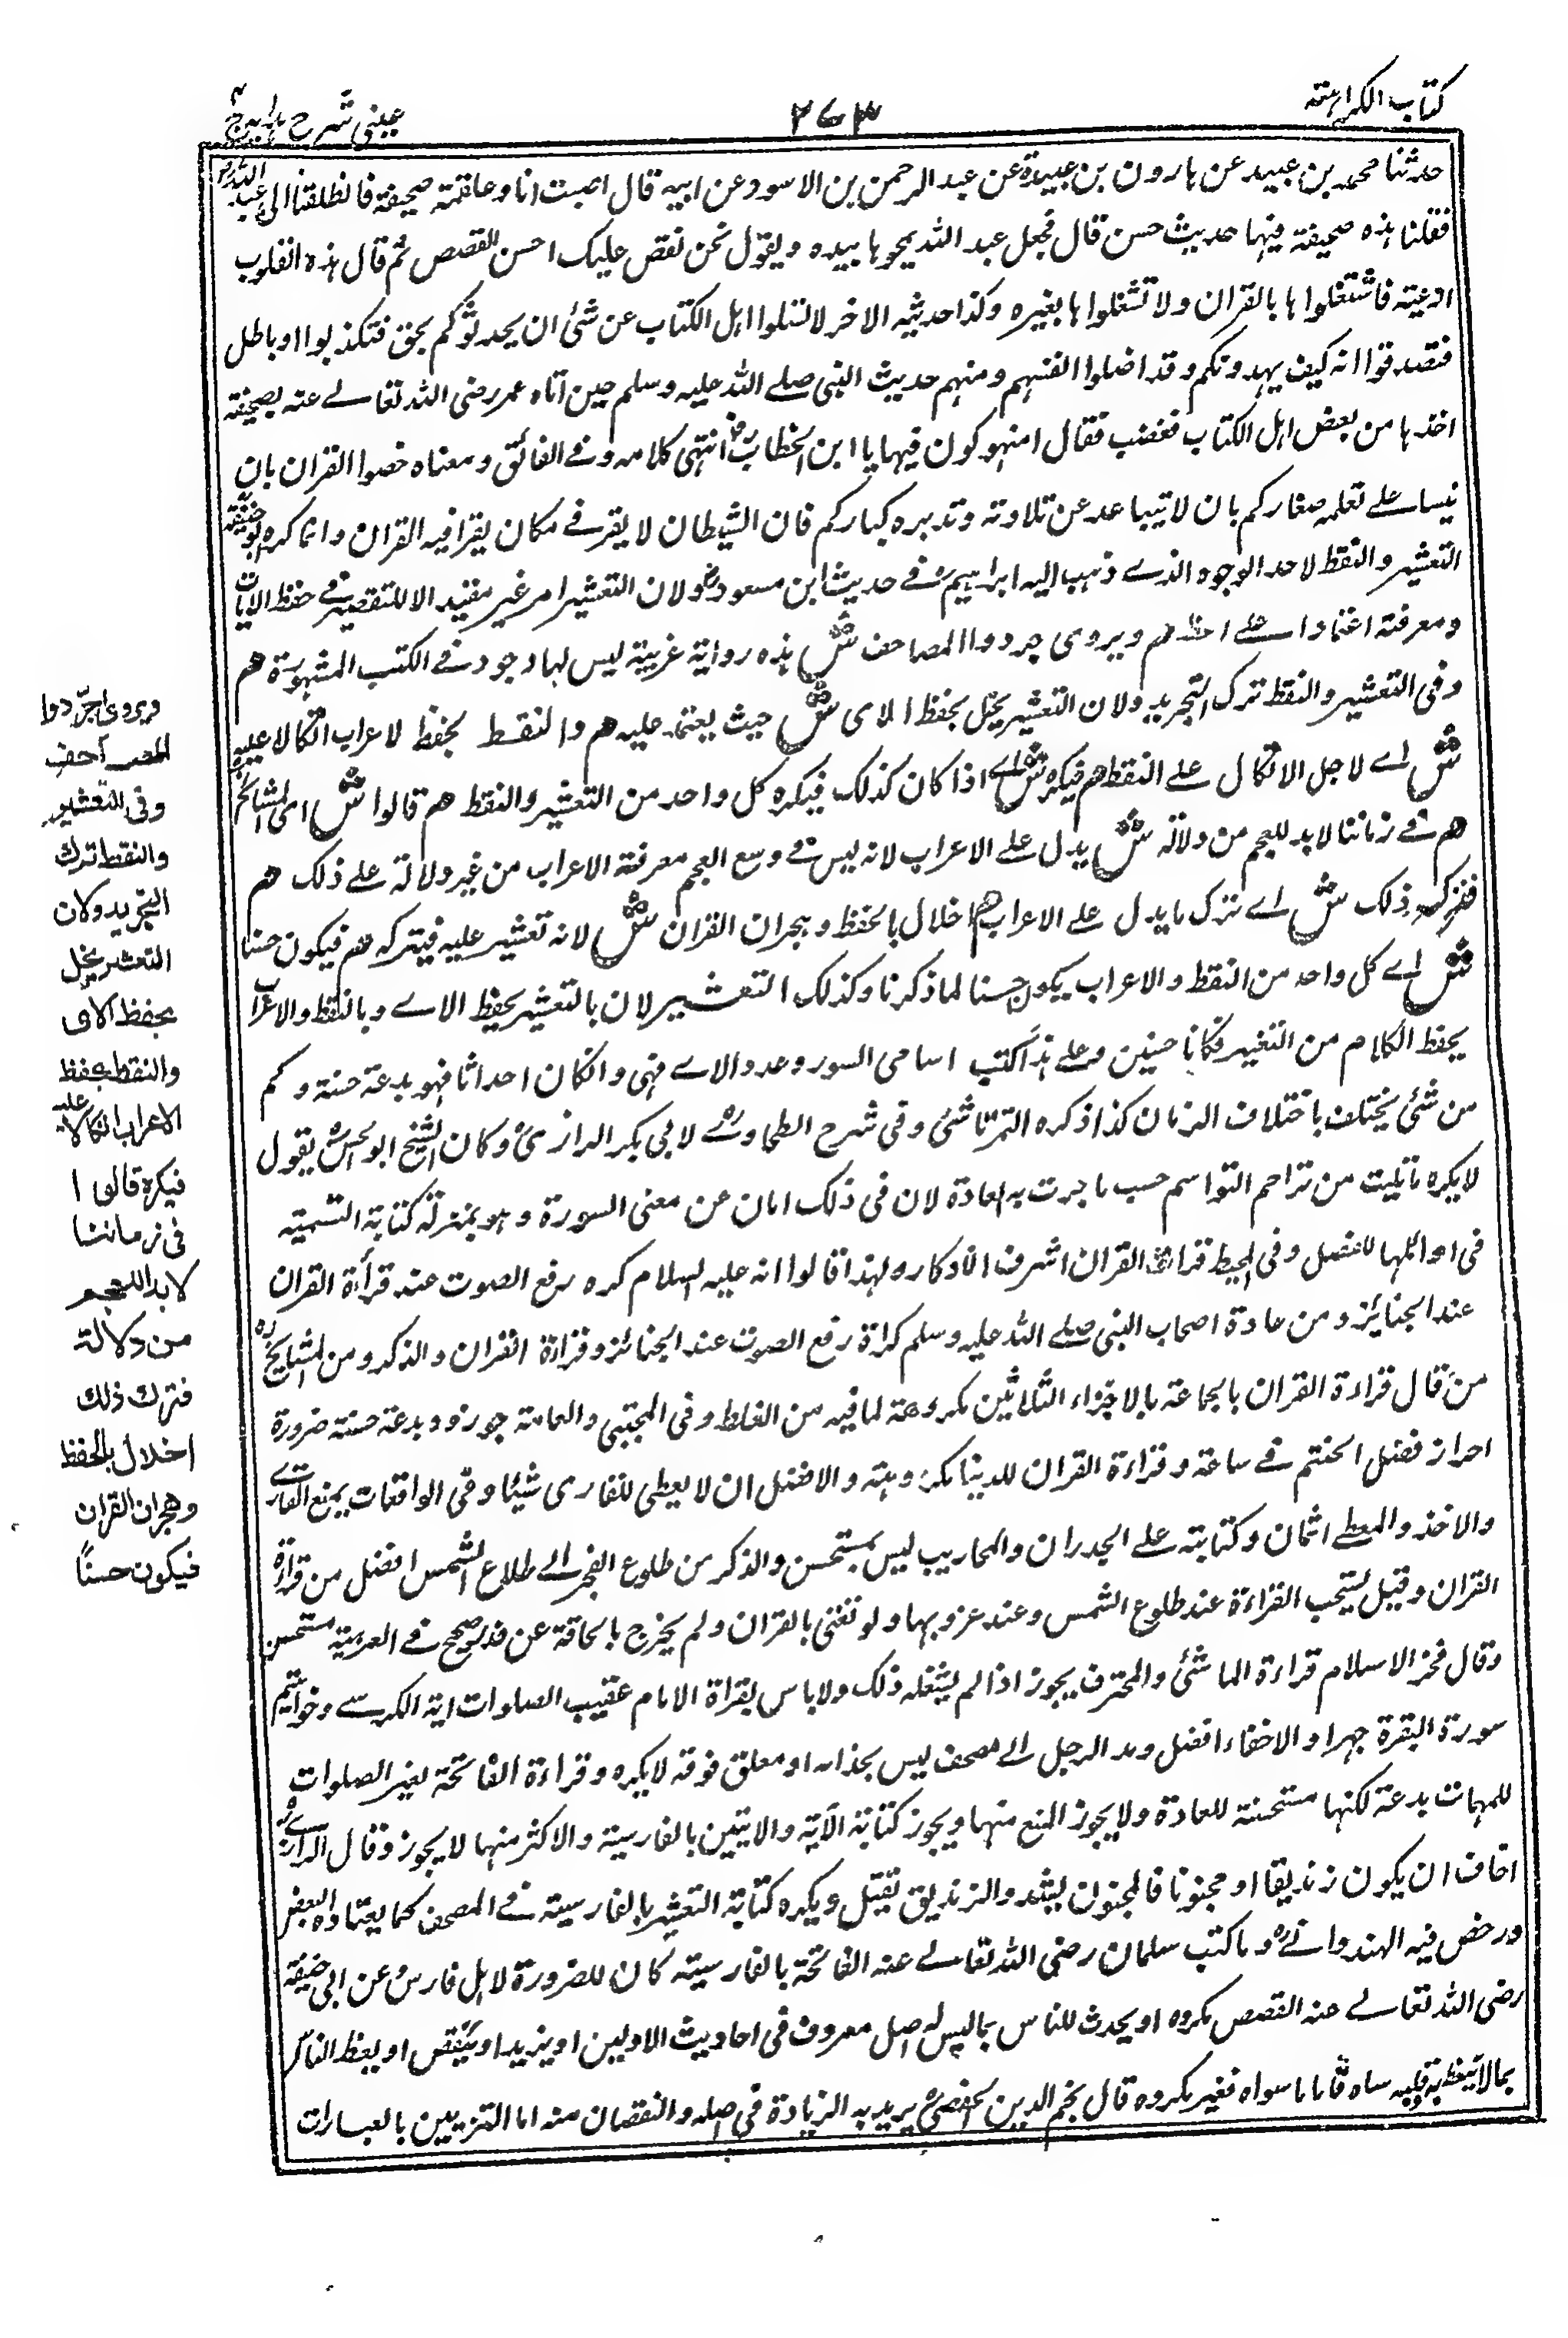 كتاب الكراهته
٢٧٣
عينى شرح هدايه ج ٤
حدثنا محمد بن عبيد عن هارون بن عبيدة عن عبد الرحمن بن الاسود عن ابيه قال اصبت انا وعلقمته صحيفة فانطلقنا الى عبد الله رض
فقلنا هذه صحيفة فيها حديث حسن قال فجعل عبد الله يمحوها بيده ويقول نحن نقص عليك احسن القصص ثم قال هذه القلوب
ادعيته فاشتغلوا ها بالقران ولا تشغلوا ها بغيره وكذا حديثه الاخر لا تسئلوا اهل الكتاب عن شئ ان يحدثوكم بحق فتكذبوا او باطل
فتصدقوا انه كيف يهدونكم وقد اضلوا انفسهم ومنهم حديث النبى صلے الله عليه وسلم حين اتاه عمر رضى الله تعالے عنه بصحيفته
اخذها من بعض اهل الكتاب فغضب فقال امتهوكون فيها يا ابن الخطاب رض انتهى كلامه وفے الفائق ومعناه خصوا القران بان
نيسا علے تعلمه صغاركم بان لا يتباعد عن تلاوته وتدبره كباركم فان الشيطان لا يقر فے مكان يقرا فيه القران وانما كره ابو حنيفته
التعشير والنقط لاحد الوجوه الذے ذهب اليه ابراهيم رح فے حديث ابن مسعود رض ولان التعشير امر غير مفيد الا للتقصير فے حفظ الايات
ومعرفته اعتمادا علے هم ويروى جردوا المصاحف ش هذه رواية غريبة ليس لها وجود فے الكتب المشهورة هم
وفى التعشير والنقط ترك التجريد ولان التعشير يخل بحفظ الاى ش حيث يعتمد عليه هم والنقط بحفظ لاعراب اتكالا عليه
ش اے لاجل الاتكال علے النقط هم فيكره ش اے اذا كان كذلك فيكره كل واحد من التعشير والنقط هم قالوا ش اى المشائخ
هم فے زماننا لابد للعجم من دلالة ش يدل علے الاعراب لانه ليس فے وسع العجم معرفة الاعراب من غير دلالة علے ذلك هم
فترك ذلك ش اے ترك ما يدل علے الاعراب هم اخلال بالحفظ وهجران القران ش لانه تعشير عليه فيتركه هم فيكون حسنا
ش اے كل واحد من النقط والاعراب يكون حسنا لما ذكرنا وكذلك التعشير لان بالتعشير يحفظ الاے وبالنقط والاعراب
يحفظ الكلام من التغير فكانا حسنين وعلے هذا كتب اسامى السور وعدد الاے فهى وانكان احداثا فهو بدعة حسنة وكم
من شئ يختلف باختلاف الزمان كذا ذكره التمرتاشئ وفى شرح الطحاوے رح لابى بكر الرازى رح وكان الشيخ ابو الحسن يقول
لا يكره ما يكتب من تراجم التواسم حسب ما جرت به العادة لان فى ذلك امان عن معنى السورة وهو بمنزلة كتابة التسميته
فى اوائلها للفصل وفى المحيط قراءة القران اشرف الاذكار ولهذا قالوا انه عليه السلام كره رفع الصوت عند قرأة القران
عند الجنايز ومن عادة اصحاب النبى صلے الله عليه وسلم كراة رفع الصوت عند الجنائز وقراءة القران والذكر ومن المشايخ ره
من قال قراءة القران بالجماعة بالاجزاء الثلاثين مكروهة لما فيه من الغلط وفى المجتبى والعامته جوزوه وبدعة حسنة ضرورة
احراز فضل الختم فے ساعة وقراءة القران للدينا مكروهته والافضل ان لا يعطى للقارى شيئا وفى الواقعات يمنع القارے
والاخذ والمعطے اثمان وكتابته علے الجدران والمحاريب ليس بمستحسن والذكر من طلوع الفجر الے طلاع الشمس افضل من قراءة
القران وقيل يستحب القراءة عند طلوع الشمس وعند غروبها ولو تغنى بالقران ولم يخرج بالحاقة عن قدر صحيح فے العربية مستحسن
وقال فخر الاسلام قراءة الماشئ والمحترف يجوز اذا لم يشغله ذلك ولا باس بقراة الامام عقيب الصلوات اية الكرسے وخواتيم
سورة البقرة جهرا والاخفاء افضل ومد الرجل الے مصحف ليس بحذائه او معلق فوقه لا يكره وقراءة الفاتحة بغير الصلوات
للمهمات بدعة لكنها مستحسنة للعادة ولا يجوز المنع منها ويجوز كتابة الاية والايتين بالفارسية والاكثر منها لا يجوز وقال الرازے رح
اخاف ان يكون زنديقا او مجنونا فالمجنون يشد والزنديق يقتل ويكره كتابة التعشير بالفارسيته فے المصحف كما يعتاده البعض
ورخص فيه الهندوانے رح وما كتب سلمان رضى الله تعالے عنه الفاتحة بالفارسيته كان للضرورة لاهل فارس وعن ابى حنيفة
رضى الله تعالے عنه القصص مكروه او يحدث للناس بما ليس له اصل معروف فى احاديث الاولين او يزيد او ينقص او يعظ الناس
بما لا يتعظ به وقلبه ساه فاما ما سواه فغير مكروه قال نجم الدين الحفصى رح يريد به الزيادة فى اصله والنقصان منه اما التزيين بالعبارات
ويروى جرّدوا
المصاحف
وفى التعشير
والنقط ترك
التجريد ولان
التعشير يخل
بحفظ الاى
والنقط يحفظ
الاعراب اتكالا عليه
فيكره قالوا
فى زماننا
لابد للعجم
من دلالة
فترك ذلك
اخلال بالحفظ
وهجران القران
فيكون حسنًا